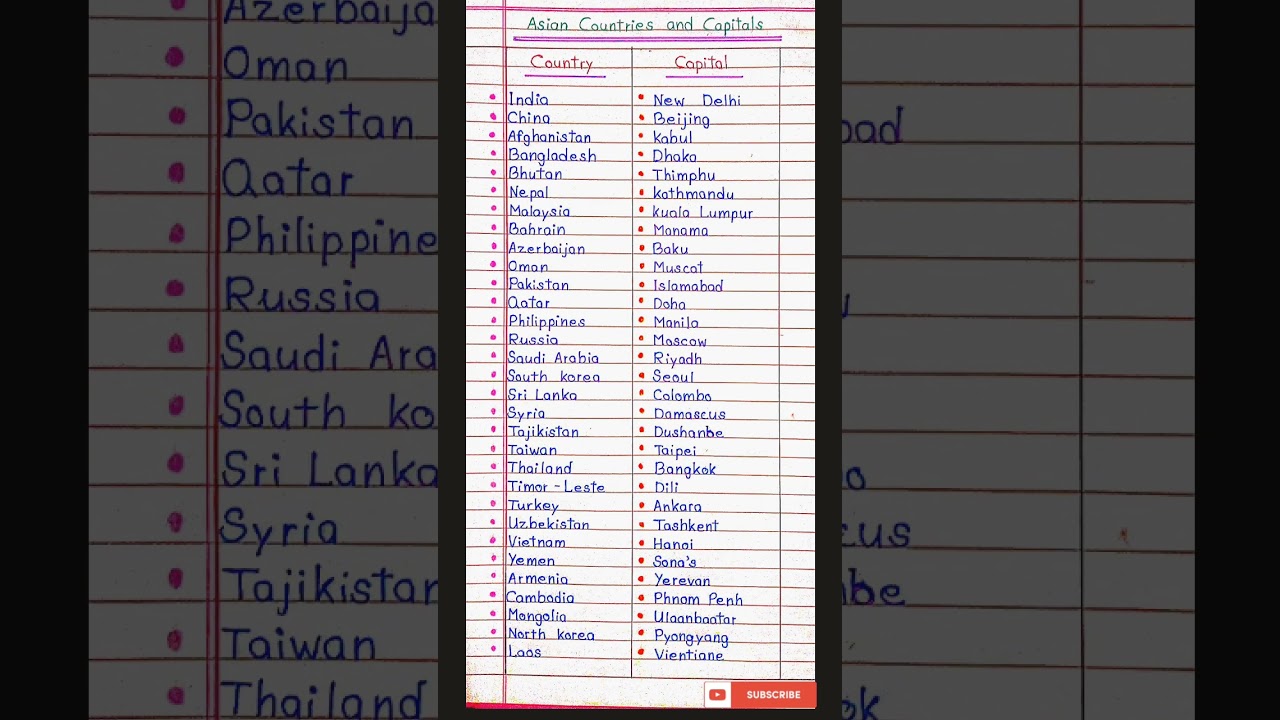 Asian Countries and Capitals
Country Capital
India New Delhi
China Beijing
Afghanistan Kabul
Bangladesh Dhaka
Bhutan Thimphu
Nepal Kathmandu
Malaysia Kuala Lumpur
Bahrain Manama
Azerbaijan Baku
Oman Muscat
Pakistan Islamabad
Qatar Doha
Philippines Manila
Russia Moscow
Saudi Arabia Riyadh
South Korea Seoul
Sri Lanka Colombo
Syria Damascus
Tajikistan Dushanbe
Taiwan Taipei
Thailand Bangkok
Timor-Leste Dili
Turkey Ankara
Uzbekistan Tashkent
Vietnam Hanoi
Yemen Sona's
Armenia Yerevan
Cambodia Phnom Penh
Mongolia Ulaanbaatar
North Korea Pyongyang
Laos Vientiane
SUBSCRIBE
Azerbaija
Oman
Pakistan
Qatar
Philippine
Russia
Saudi Ara
South ko
Sri Lanka
Syria
Tajikistan
Taiwan
Thailand